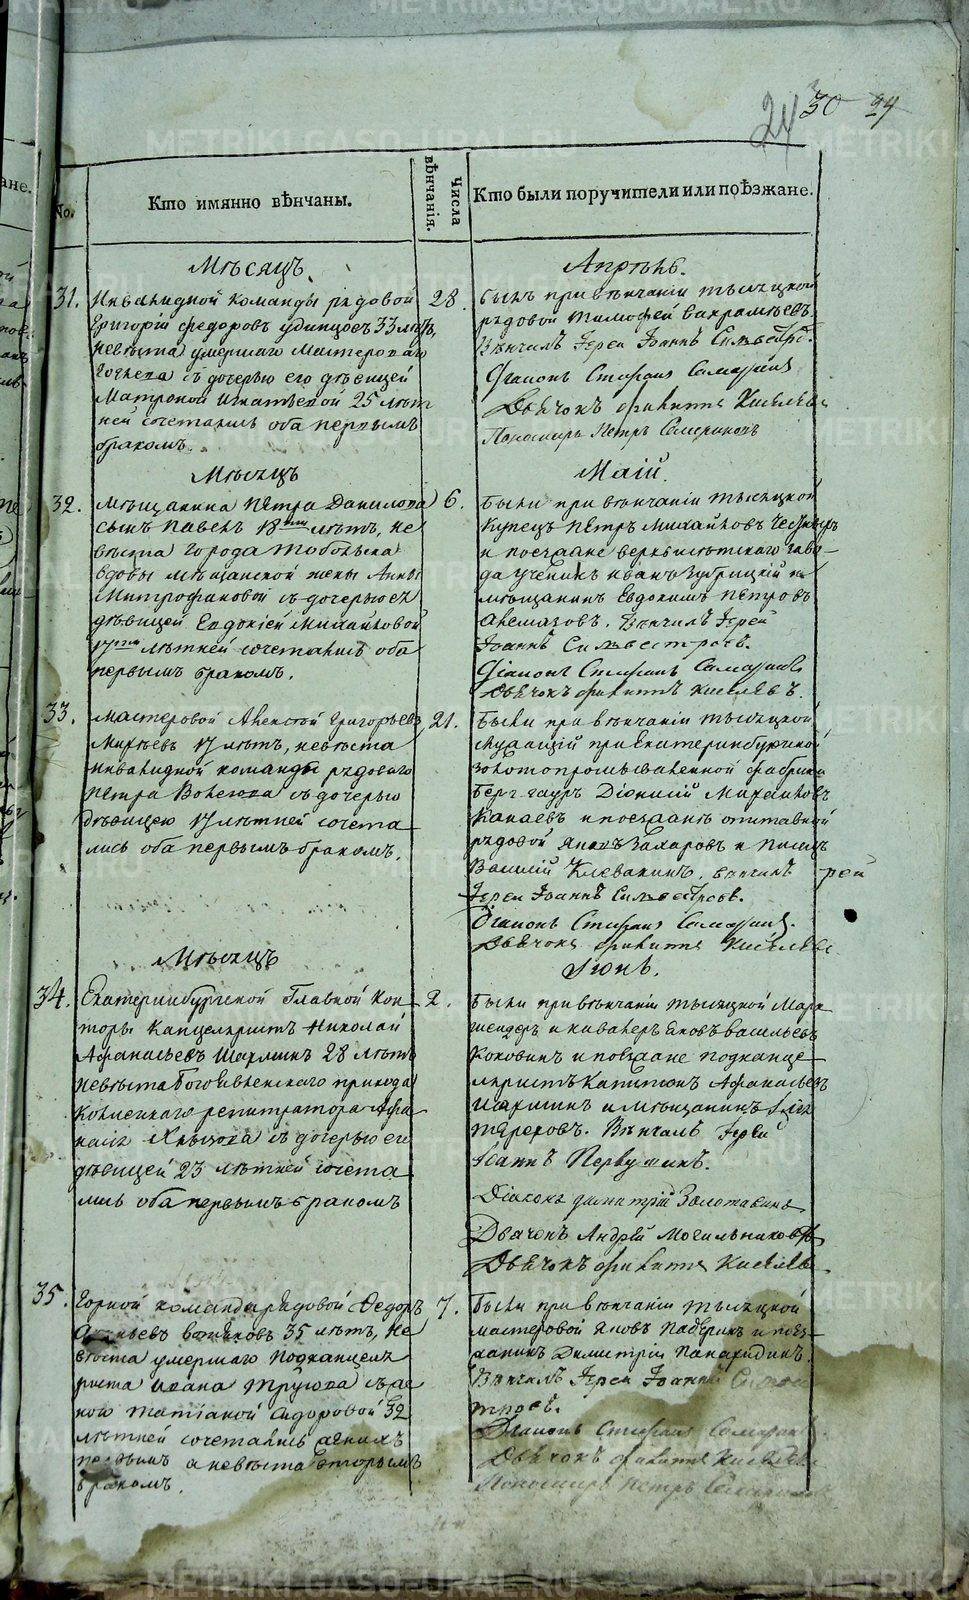 24 30 24
No.
Кто имянно вѣнчаны.
Числа вѣнчанія.
Кто были поручители или поѣзжане.
Мѣсяцъ
Апрѣль.
31.
Инвалидной команды рядовой
Григорій Федоровъ удинцовъ 33 лѣтъ,
невѣста умершаго мастероваго
съ дочерью его дѣвицей
Матроной Игнатьевой 25 лѣт
ней сочетались оба первымъ
бракомъ.
28.
былъ при вѣнчаніи тысяцкой
рядовой Тимофей Вахрамѣевъ.
Вѣнчалъ Іерей Іоаннъ Сильвестровъ.
Діаконъ Стефанъ
Дьячокъ Киселевъ
Пономарь Петръ
Мѣсяцъ
Маій.
32.
Мѣщанина Петра Данилова
сынъ Павелъ 18ти лѣтъ, не
вѣста города Тобольска
вдовы мѣщанской жены Анны
Митрофановой съ дочерью ея
дѣвицей Евдокіей Михайловой
17ти лѣтней сочетались оба
первымъ бракомъ.
6.
Были при вѣнчаніи тысяцкой
Купецъ Петръ Михайловъ
и поезжане верхъисетскаго заво-
да ученикъ Иванъ Зубрицкій и
мѣщанинъ Евдокимъ Петровъ
Вѣнчалъ Іерей
Іоаннъ Сильвестровъ.
Діаконъ Стефанъ
Дьячокъ Киселевъ.
33.
Мастеровой Алексѣй Григорьевъ
17 лѣтъ, невѣста
инвалидной команды рядоваго
Петра съ дочерью
дѣвицею 17 лѣтней сочета
лись оба первымъ бракомъ.
21.
Были при вѣнчаніи тысяцкой
при Екатеринбургской
золотопромывальной фабрики
Берг-гауръ Діонисій Михайловъ
Канаевъ и поезжане отставной
рядовой Яковъ Захаровъ и писецъ
Василій Клевакинъ. вѣнчалъ
Іерей Іоаннъ Сильвестровъ.
Діаконъ Стефанъ
Дьячокъ Киселевъ
Мѣсяцъ
Іюнь.
34.
Екатеринбургской Главной Кон
торы Канцеляристъ Николай
Афанасьевъ 28 лѣтъ
невѣста Богоявленскаго прихода
регистратора Афа
насія съ дочерью его
дѣвицей 23 лѣтней сочета
лись оба первымъ бракомъ
2.
Были при вѣнчаніи тысяцкой Марк
шейдеръ и кавалеръ Яковъ Васильевъ
Коковинъ и поезжане подканце
ляристъ Капитонъ Афанасьевъ
и мѣщанинъ
Терековъ. Вѣнчалъ Іерей
Іоаннъ Первушинъ.
Діаконъ Димитрій Золотавинъ
Дьячокъ Андрей Могильниковъ
Дьячокъ Киселевъ
35.
Горной команды рядовой Федоръ
вотяковъ 35 лѣтъ, не
вѣста умершаго Подканцеля
риста Ивана Трубова съ же
ною Татіаной Сидоровой 32
лѣтней сочетались женихъ
первымъ а невѣста вторымъ
бракомъ.
7.
Были при вѣнчаніи тысяцкой
мастеровой Яковъ и поѣз
жанинъ Димитрій Панафидинъ.
Вѣнчалъ Іерей Іоаннъ Сильвес
тровъ.
Діаконъ Стефанъ
Дьячокъ Киселевъ
Пономарь Петръ
METRIKI.GASO-URAL.RU